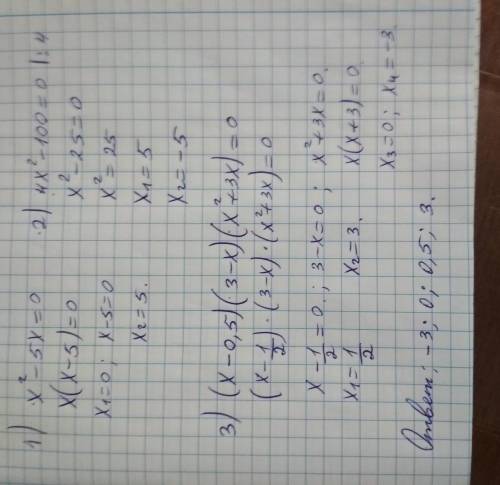 1) x² - 5x = 0
x(x-5) = 0
x₁ = 0; x-5 = 0
x₂ = 5.
2) 4x² - 100 = 0 |:4
x² - 25 = 0
x² = 25
x₁ = 5
x₂ = -5
3) (x - 0,5)(3-x)(x² + 3x) = 0
(x - 1/2) · (3-x) · (x² + 3x) = 0
x - 1/2 = 0.; 3-x = 0; x² + 3x = 0.
x₁ = 1/2 x₂ = 3. x(x+3) = 0.
x₃ = 0; x₄ = -3.
Ответ; -3; 0; 0,5; 3.